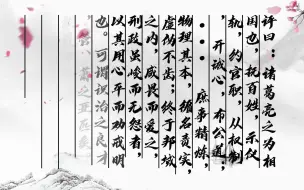 评曰：诸葛亮之为相
国也，抚百姓，示仪
轨，约官职，从权制
，开诚心，布公道；
••• 庶事精炼，
物理其本，循名责实，
虚伪不齿；终于邦域
之内，咸畏而爱之，
刑政虽峻而无怨者，
以其用心平而劝戒明
也。可谓识治之良才
、萧之亚匹